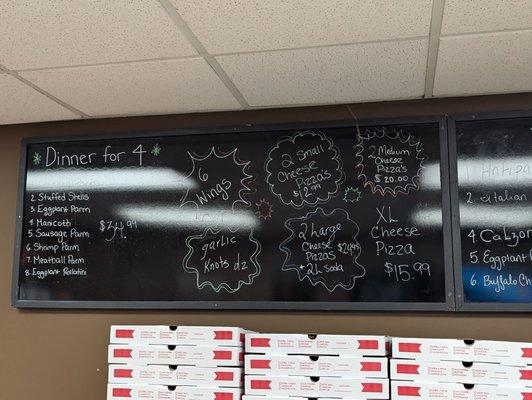 Dinner for 4
2 Stuffed Shells
3 Eggplant Parm
4 Manicotti
5 Sausage Parm
6 Shrimp Parm
7 Meatball Parm
8 Eggplant Rollatini
$34.99
6
Wings
garlic
Knots dz
2 Small
Cheese
Pizzas
2 Large
Cheese
Pizzas
+
2L Soda
$24.95
2 Medium
Cheese
Pizzas
$20.00
XL
Cheese
Pizza
$15.99
2
4 Calzon
5 Eggplant
6 Buffalo Ch